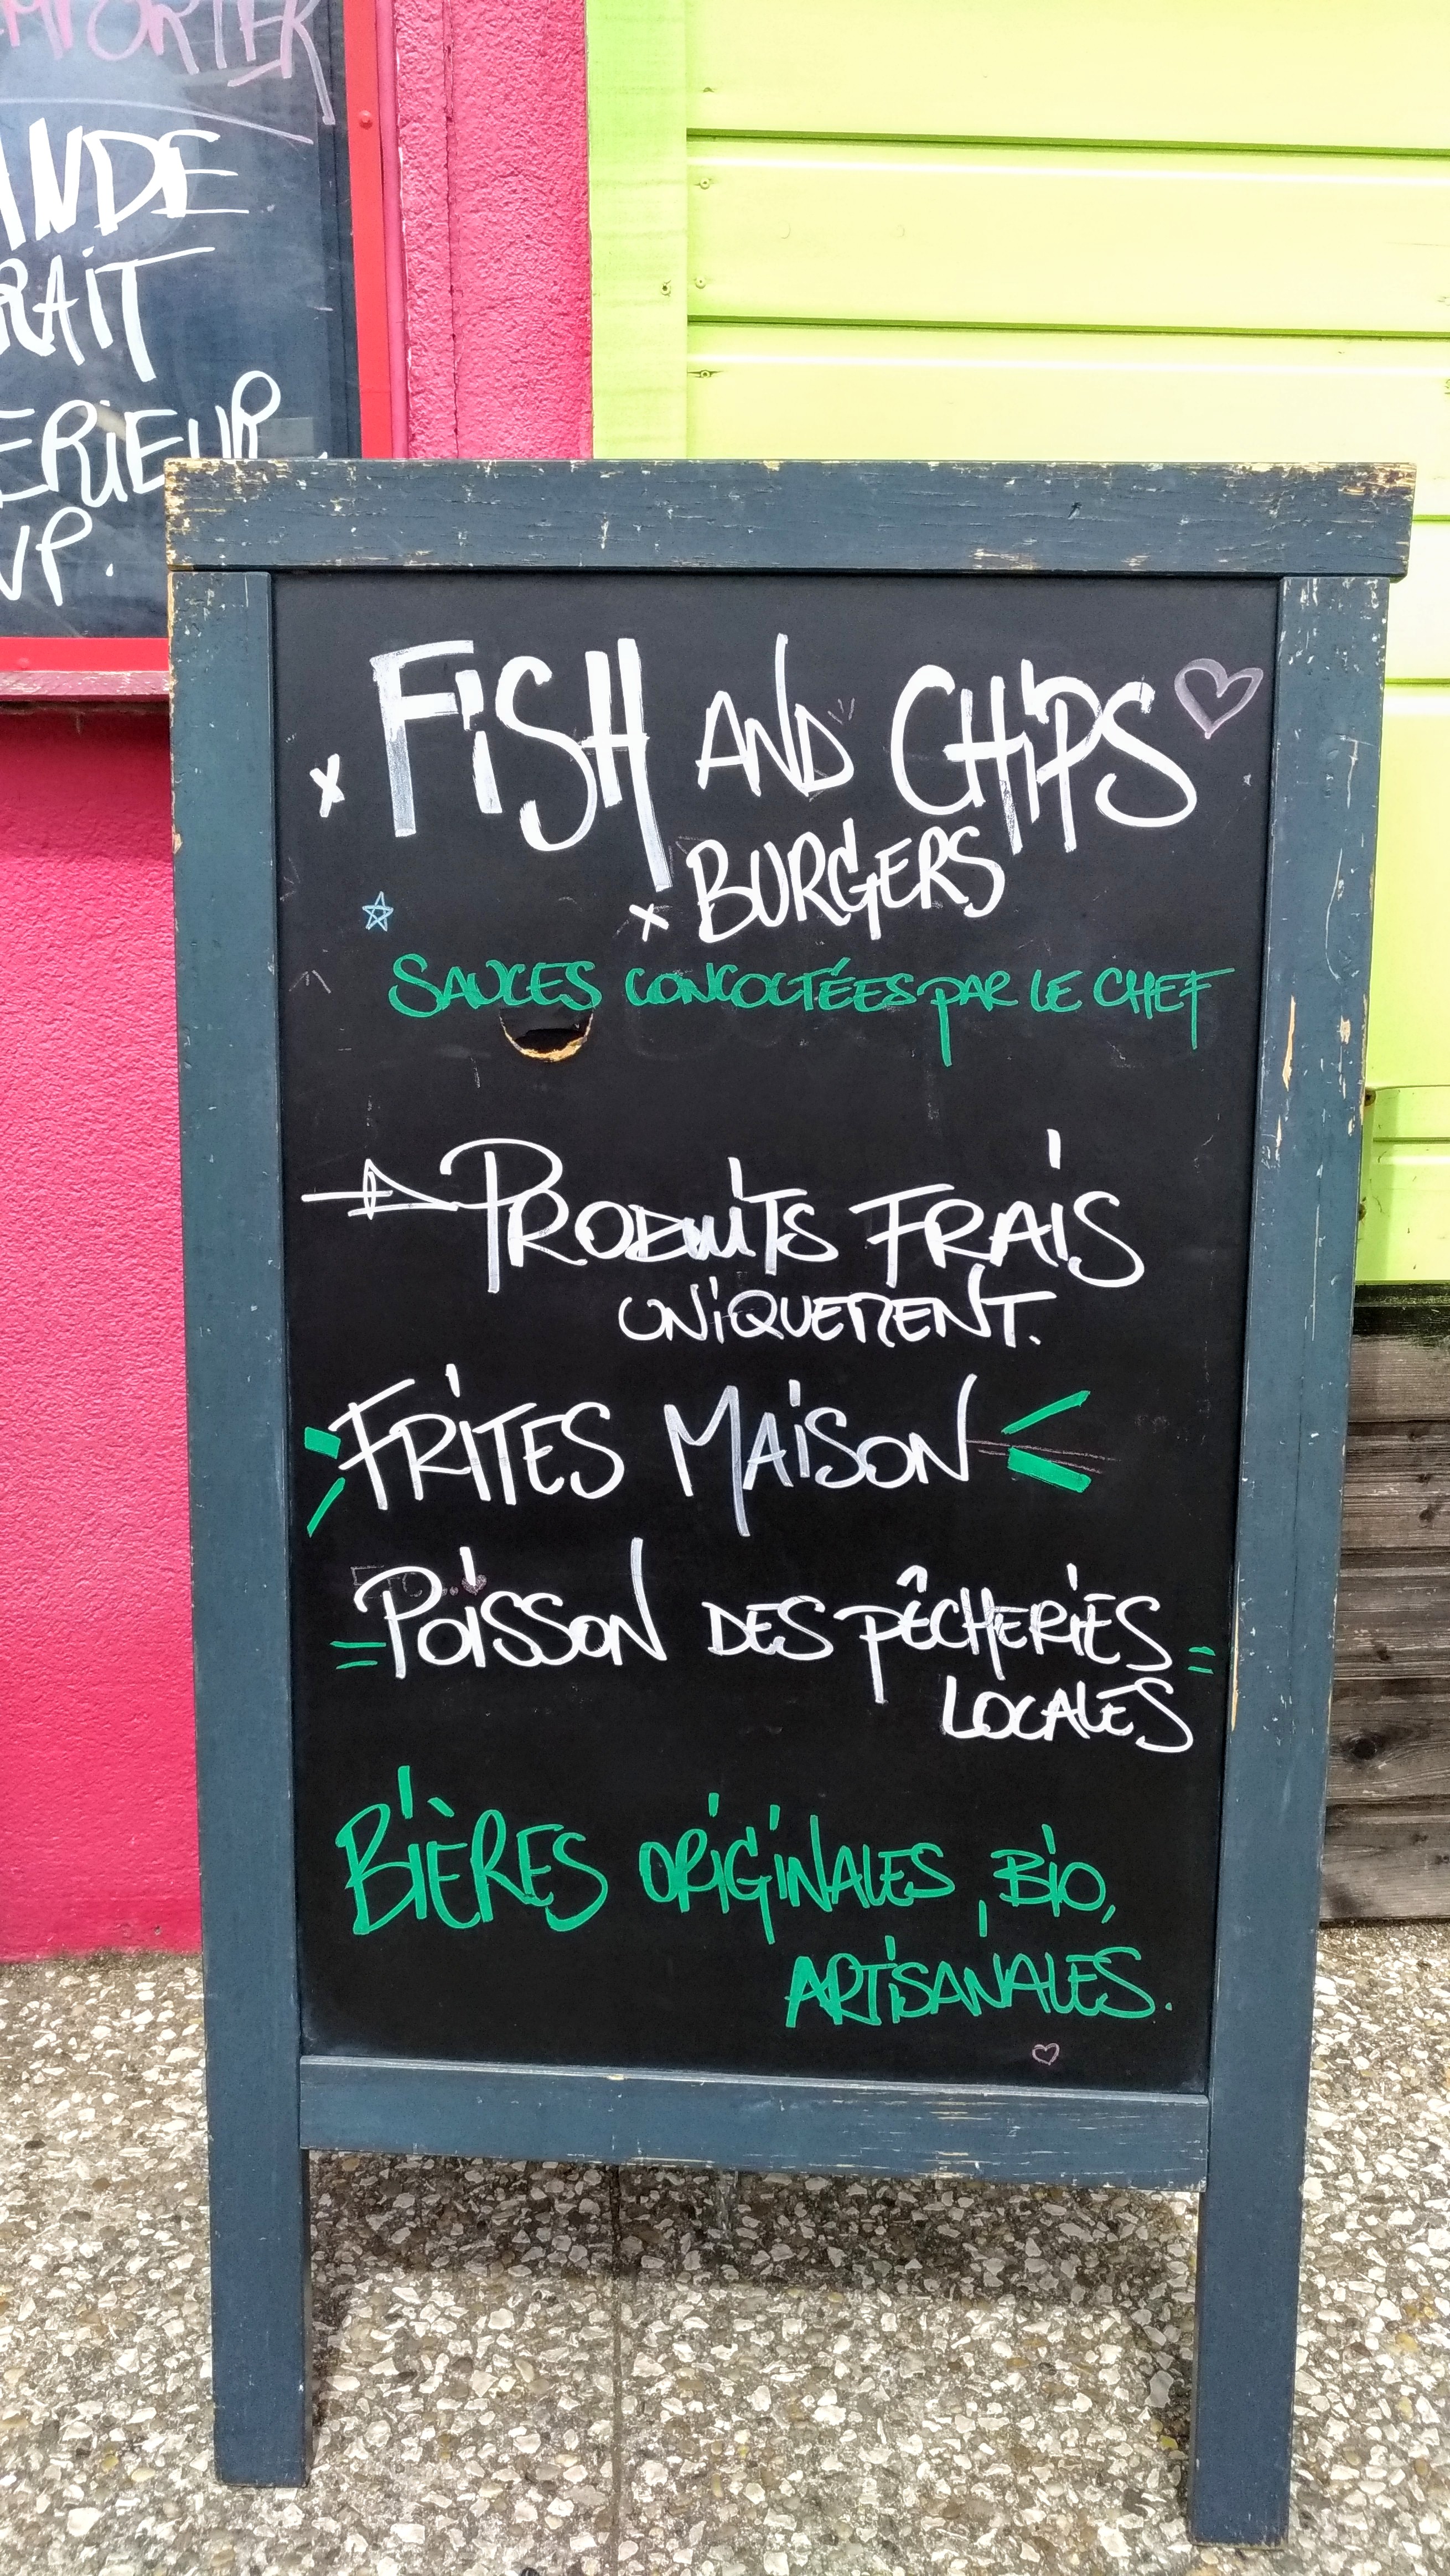 EMPORTER
ANDE
RAIT
ERIEUR
VP.
x FISH AND CHIPS
x BURGERS
SAUCES CONCOCTÉES PAR LE CHEF
PRODUITS FRAIS
UNIQUEMENT.
FRITES MAISON
POISSON DES PÊCHERIES
LOCALES
BIÈRES ORIGINALES, BIO,
ARTISANALES.